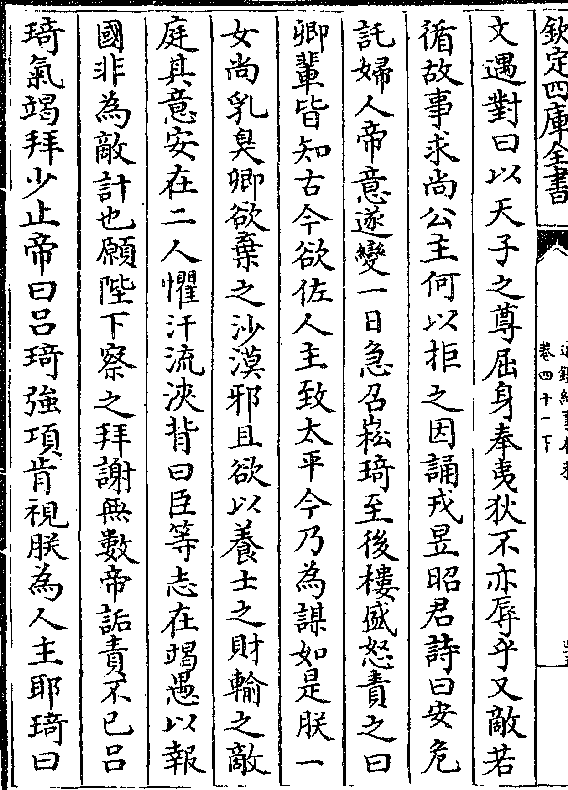 欽定四庫全書
卷四十一下
文遇對曰以天子之尊屈身奉夷狄不亦辱乎又敵若
循故事求尚公主何以拒之因誦戎昱昭君詩曰安危
託婦人帝意遂變一日急召崧琦至後樓盛怒責之曰
卿輩皆知古今欲佐人主致太平今乃為謀如是朕一
女尚乳臭卿欲棄之沙漠邪且欲以養士之財輸之敵
庭其意安在二人懼汗流浹背曰臣等志在竭愚以報
國非為敵計也願陛下察之拜謝無數帝詬責不已吕
琦氣竭拜少止帝曰吕琦強項肯視朕為人主耶琦曰